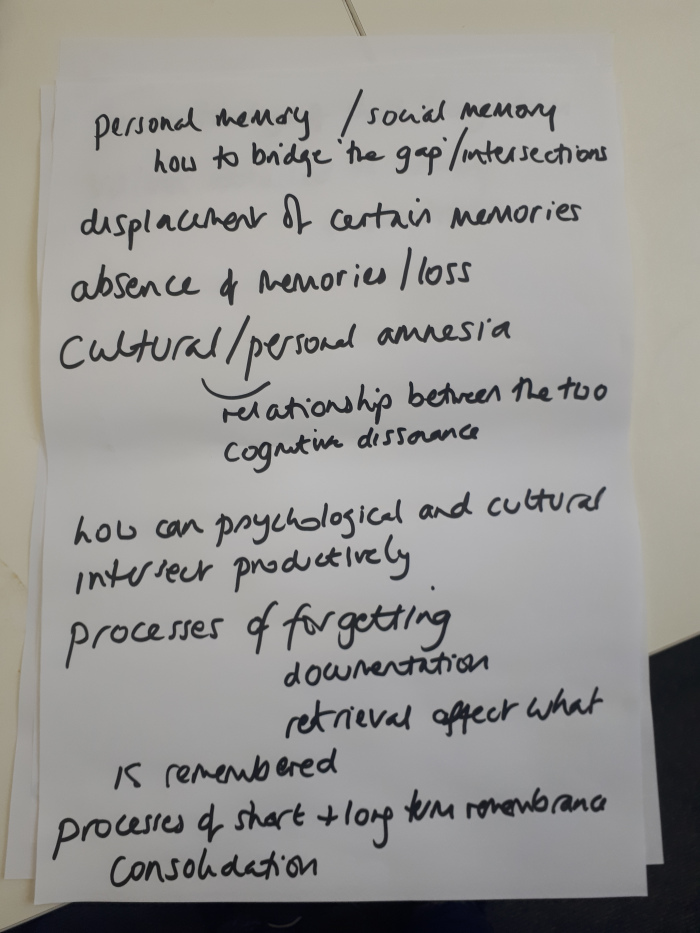 personal memory / social memory
how to bridge the gap / intersections
displacement of certain memories
absence of memories / loss
Cultural / personal amnesia
relationship between the two
cognitive dissonance
how can psychological and cultural
intersect productively
processes of forgetting
documentation
retrieval affect what
is remembered
processes of short + long term remembrance
consolidation